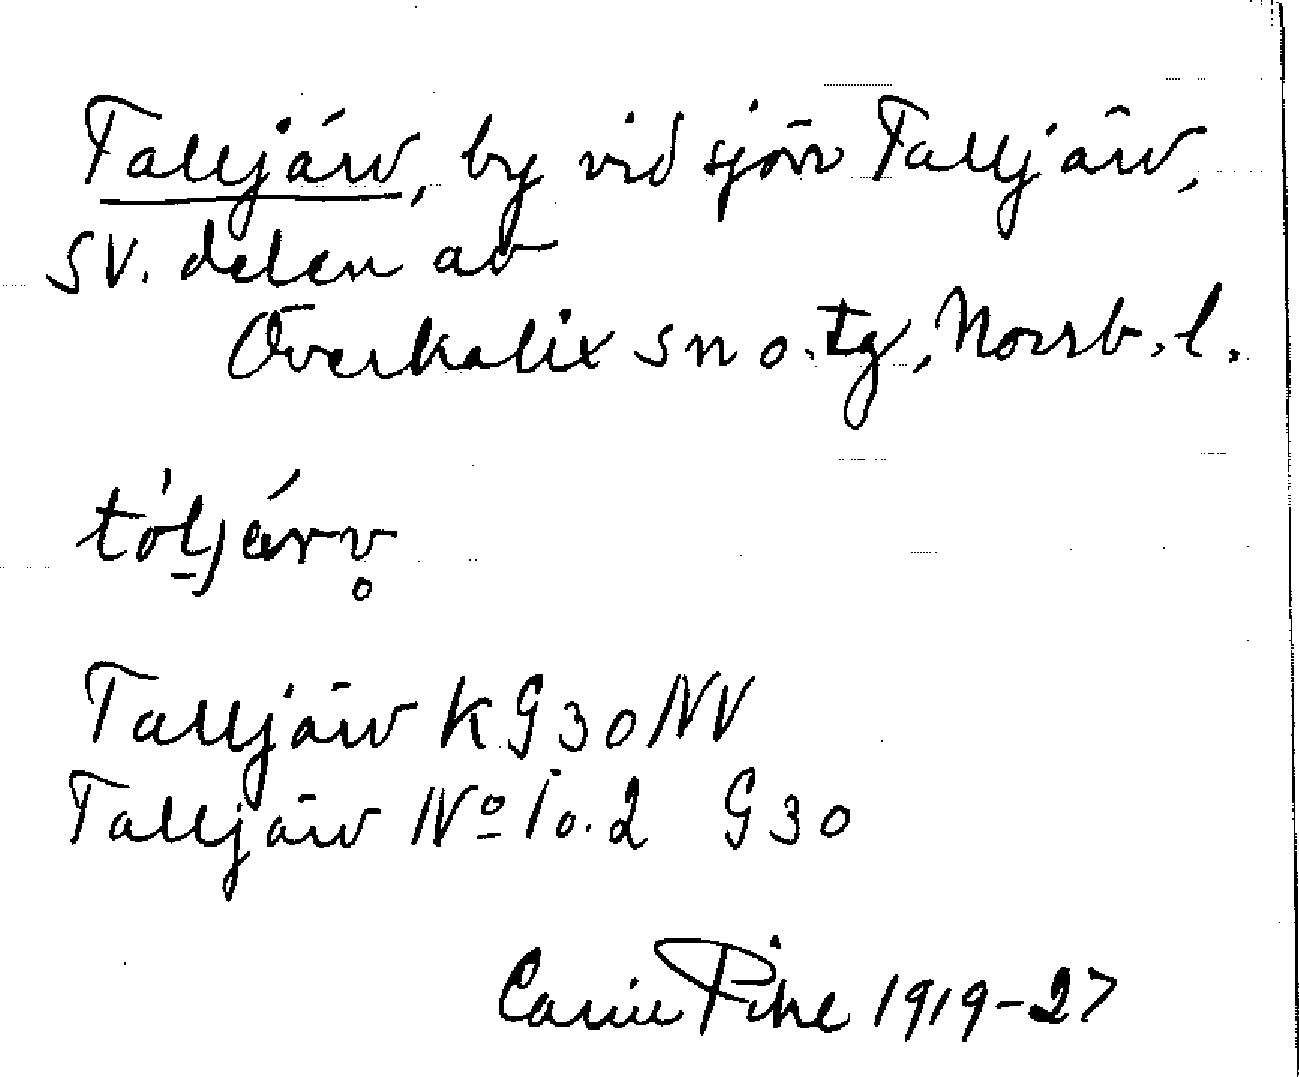 Talljärv, by vid sjön Talljärv,
SV. delen av
Överkalix sn o. tg, Norrb. l.
tól̠járv̥
Talljärv K G30 NV
Talljärv Nº 1o. 2 G30
Carin Pihl 1919-27